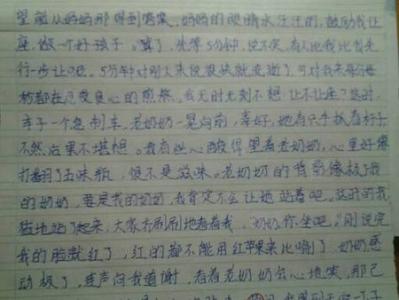 望着从妈妈那得到答案,妈妈的眼睛水汪汪的,鼓励我让
座,做一个好孩子。"算了,先等5分钟,说不定,有人他我比首先
行一步让了呢。5分钟对别人来说很快就度过了,可对我来每分每
秒都在忍受良心的煎熬。我无时无刻不想:让不让座?这时,
车子一个急刹车,老奶奶一晃向前,幸好,她有只手扶着杆子
不然后果不堪想。我有些心酸得望着老奶奶,心里好像
打翻了五味瓶,很不是滋味。老奶奶的背影像极了我
的奶奶,要是我的奶奶,我肯定不会让她站着吧。这时的我
猛地站了起来,大家齐刷刷地看着我,"奶奶你坐吧。"刚说完
我的脸就红了,红的都不能用红苹果来比喻了。奶奶感
动极了,连声向我道谢,看着老奶奶会心地笑,那己